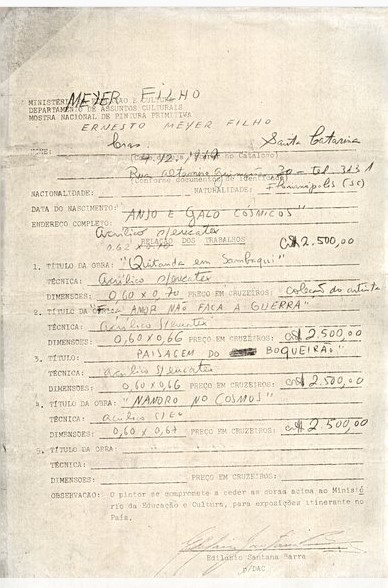 MEYER FILHO
MINISTÉRIO DA EDUCAÇÃO E CULTURA
DEPARTAMENTO DE ASSUNTOS CULTURAIS
MOSTRA NACIONAL DE PINTURA PRIMITIVA
ERNESTO MEYER FILHO
Bras. Santa Catarina
NOME:
4.12.1919 no Catálogo)
Rua 70 - Tel. 3131
(Conforme documento de
NACIONALIDADE: NATURALIDADE: Florianópolis (SC)
DATA DO NASCIMENTO: "ANJO E GALO CÓSMICOS"
ENDEREÇO COMPLETO:
Acrílico s/eucatex
RELAÇÃO DOS TRABALHOS Cr$ 2.500,00
1. TÍTULO DA OBRA: "Quitanda em Sambaqui"
TÉCNICA: Acrílico s/eucatex
DIMENSÕES: 0,60 x 0,70 PREÇO EM CRUZEIROS: coleção do artista
2. TÍTULO DA OBRA: "FAÇA AMOR NÃO FAÇA A GUERRA"
TÉCNICA: Acrílico s/eucatex
DIMENSÕES: 0,60 x 0,66 PREÇO EM CRUZEIROS: Cr$ 2.500,00
3. TÍTULO: PAISAGEM DO BOQUEIRÃO"
TÉCNICA: acrílico s/eucatex
DIMENSÕES: 0,60 x 0,66 PREÇO EM CRUZEIROS: Cr$ 2.500,00
4. TÍTULO DA OBRA: "NANDRO NO COSMUS"
TÉCNICA: acrílico s/eu
DIMENSÕES: 0,60 x 0,67 PREÇO EM CRUZEIROS: Cr$ 2.500,00
5. TÍTULO DA OBRA:
TÉCNICA:
DIMENSÕES: PREÇO EM CRUZEIROS:
OBSERVAÇÃO: O pintor se compromete a ceder as obras acima ao Ministé
rio da Educação e Cultura, para exposições itinerante no
País.
Edilonio Santana Barra
p/DAC